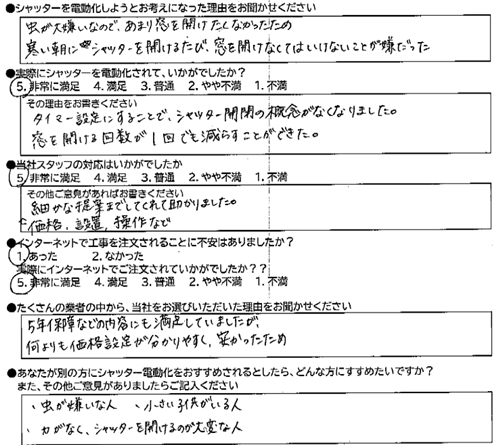 ●シャッターを電動化しようとお考えになった理由をお聞かせください
虫が大嫌いなので、あまり窓を開けたくなかったため
寒い朝にシャッターを開けるたび、窓を開けなくてはいけないことが嫌だった
●実際にシャッターを電動化されて、いかがでしたか?
5.非常に満足 4.満足 3.普通 2.やや不満 1.不満
その理由をお書きください
タイマー設定にすることで、シャッター開閉の概念がなくなりました。
窓を開ける回数が1回でも減らすことができた。
●当社スタッフの対応はいかがでしたか
5.非常に満足 4.満足 3.普通 2.やや不満 1.不満
その他ご意見があればお書きください
細かな提案までしてくれて助かりました。
価格、設置、操作など
●インターネットで工事を注文されることに不安はありましたか?
1.あった 2.なかった
実際にインターネットでご注文されていかがでしたか??
5.非常に満足 4.満足 3.普通 2.やや不満 1.不満
●たくさんの業者の中から、当社をお選びいただいた理由をお聞かせください
5年保障などの内容にも満足していましたが、
何よりも価格設定が分かりやすく、安かったため
●あなたが別の方にシャッター電動化をおすすめされるとしたら、どんな方にすすめたいですか?
また、その他ご意見がありましたらご記入ください
・虫が嫌いな人 ・小さい子供がいる人
・力がなく、シャッターを開けるのが大変な人